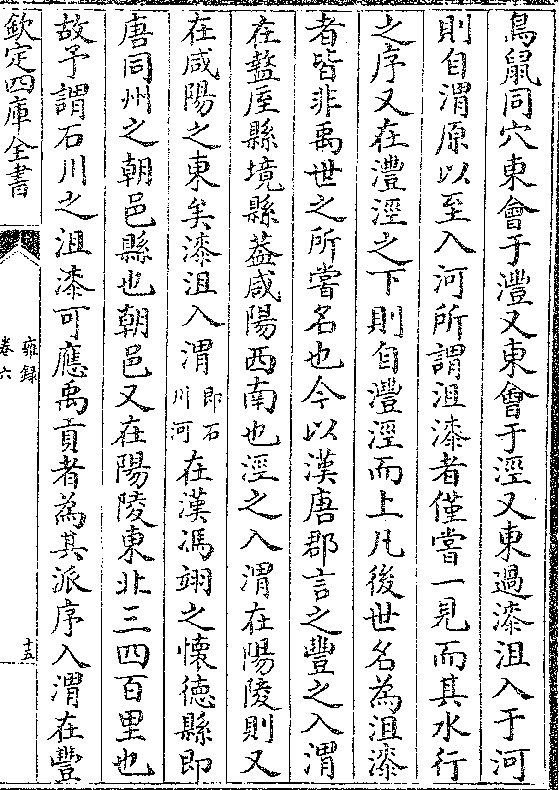 鳥䑕同穴東會于灃又東會于涇又東過漆沮入于河
則自渭原以至入河所謂沮漆者僅嘗一見而其水行
之序又在灃涇之下則自灃涇而上凡後世名為沮漆
者皆非禹世之所嘗名也今以漢唐郡言之豐之入渭
在盩厔縣境縣葢咸陽西南也涇之入渭在陽陵則又
在咸陽之東矣漆沮入渭即石川河在漢馮翊之懷德縣即
唐同州之朝邑縣也朝邑又在陽陵東北三四百里也
故予謂石川之沮漆可應禹貢者為其派序入渭在豐
欽定四庫全書
雍録
卷六
十五